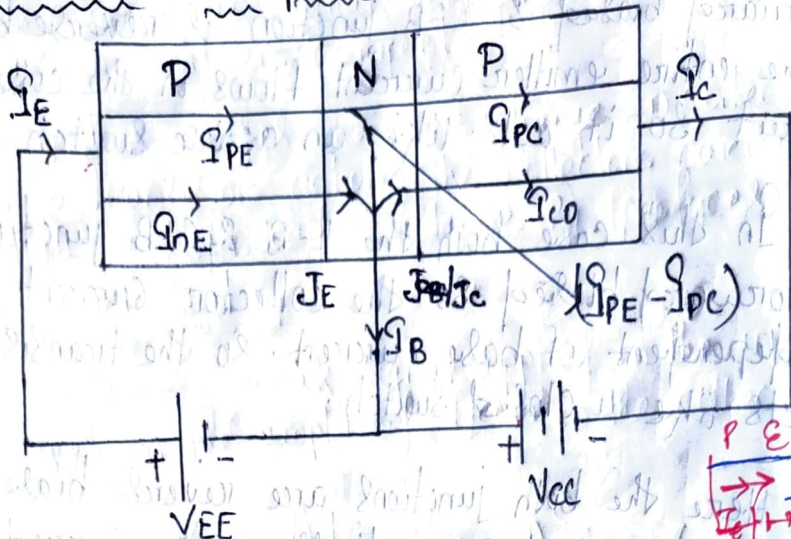 P N P
I_E I_C
I_PE I_PC
I_nE I_CO
J_E J_C (I_PE - I_PC)
I_B
+ - + -
V_EE V_CC
P E